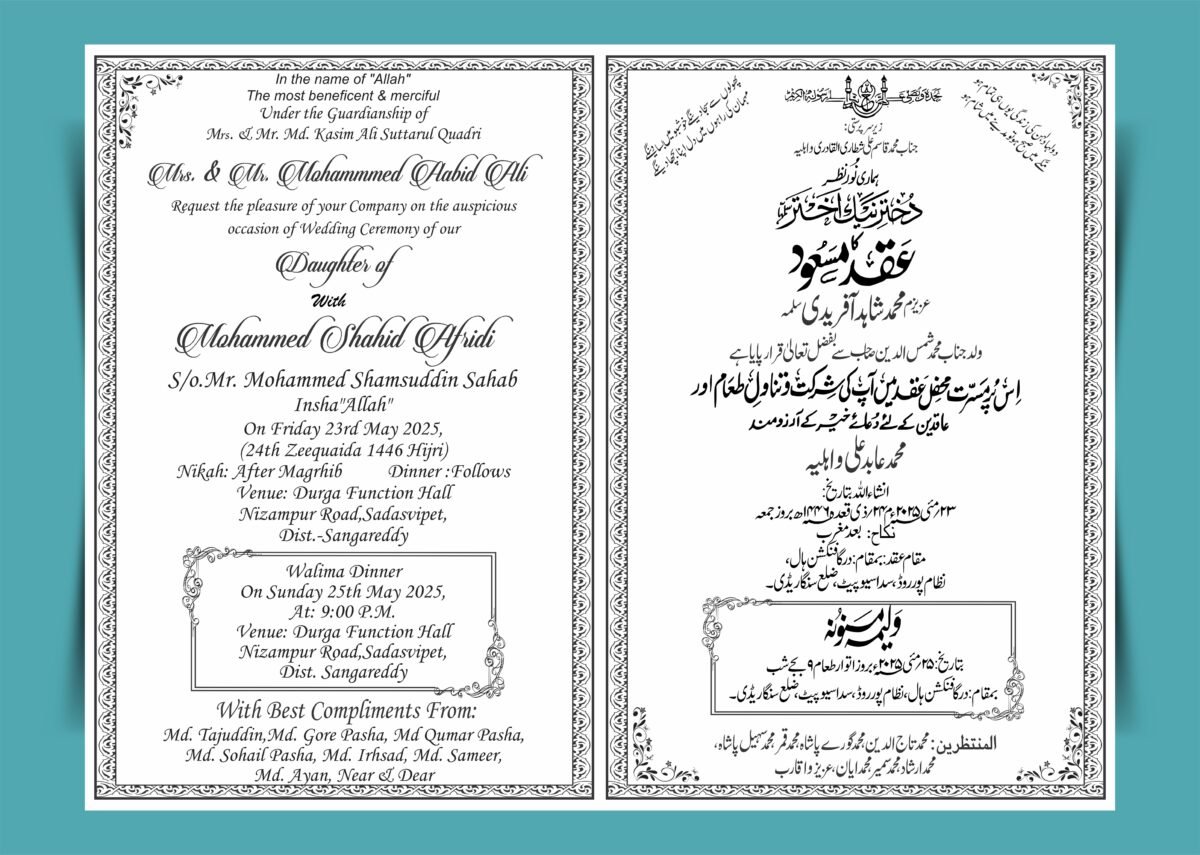 In the name of "Allah"
The most beneficent & merciful
Under the Guardianship of
Mrs. & Mr. Md. Kasim Ali Suttarul Quadri
Mrs. & Mr. Mohammmed Aabid Ali
Request the pleasure of your Company on the auspicious
occasion of Wedding Ceremony of our
Daughter of
With
Mohammed Shahid Afridi
S/o.Mr. Mohammed Shamsuddin Sahab
Insha"Allah"
On Friday 23rd May 2025,
(24th Zeequaida 1446 Hijri)
Nikah: After Magrhib Dinner :Follows
Venue: Durga Function Hall
Nizampur Road,Sadasvipet,
Dist.-Sangareddy
Walima Dinner
On Sunday 25th May 2025,
At: 9:00 P.M.
Venue: Durga Function Hall
Nizampur Road,Sadasvipet,
Dist. Sangareddy
With Best Compliments From:
Md. Tajuddin,Md. Gore Pasha, Md Qumar Pasha,
Md. Sohail Pasha, Md. Irhsad, Md. Sameer,
Md. Ayan, Near & Dear
پھولوں سے سجائینگے خوشبو میں بسائینگے
مہمان کی راہوں میں دل اپنا بچھائینگے
زیر سرپرستی:
جناب محمد قاسم علی شطاری القادری و اہلیہ
ہماری نُورِ نظر
دُختر نیک اختر سلمہا
کا
عَقد مسعُود
عزیزم محمد شاہد آفریدی سلمہ
ولد جناب محمد شمس الدین صاحب سے بفضل تعالیٰ قرار پایا ہے
اِس پُر مسرّت محفلِ عقد میں آپ کی شرکت و تناولِ طعام اور
عاقدین کے لئے دُعائے خیر کے آرزومند
محمد عابد علی و اہلیہ
انشاء اللہ بتاریخ:
۲۳ مئی ۲۰۲۵ء م ۲۴ ذی قعدہ ۱۴۴۶ھ بروز جمعہ
نکاح: بعد مغرب
مقام عقد: بمقام: درگا فنکشن ہال،
نظام پور روڈ، سداسیوپیٹ، ضلع سنگاریڈی۔
ولیمہ مسنونہ
بتاریخ: ۲۵ مئی ۲۰۲۵ء بروز اتوار طعام ۹ بجے شب
بمقام: درگا فنکشن ہال، نظام پور روڈ، سداسیوپیٹ، ضلع سنگاریڈی۔
المنتظرین: محمد تاج الدین، محمد گورے پاشاہ، محمد قمر، محمد سہیل پاشاہ،
محمد ارشاد، محمد سمیر، محمد ایان، عزیز و اقارب